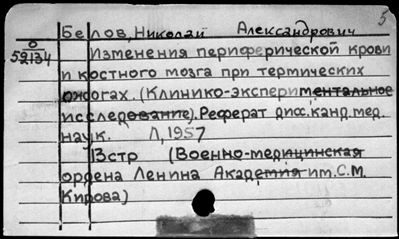 5
Белов, Николай Александрович
0
52134
Изменения периферической крови
и костного мозга при термических
ожогах. (Клинико-экспериментальное
исследование). Реферат дисс. канд. мед.
наук. Л, 1957
13стр (Военно-медицинская
ордена Ленина Академия им. С.М.
Кирова)